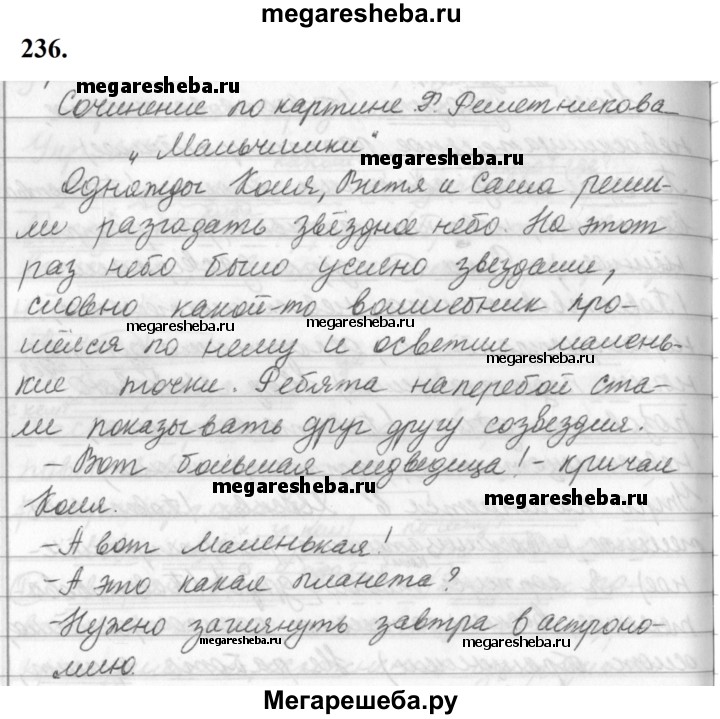 megaresheba.ru
236.
megaresheba.ru
Сочинение по картине Ф. Решетникова
„Мальчишки"
megaresheba.ru
Однажды Коля, Витя и Саша реши-
ли разгадать звёздное небо. На этот
раз небо было усеяно звездами,
словно какой-то волшебник про-
megaresheba.ru megaresheba.ru
шёлся по нему и осветил малень-
megaresheba.ru
кие точки. Ребята наперебой ста-
ли показывать друг другу созвездия.
- Вот большая медведица! - кричал
megaresheba.ru megaresheba.ru
Коля.
- А вот маленькая!
- А это какая планета?
- Нужно заглянуть завтра в астроно-
megaresheba.ru megaresheba.ru
мию.
Мегарешеба.ру